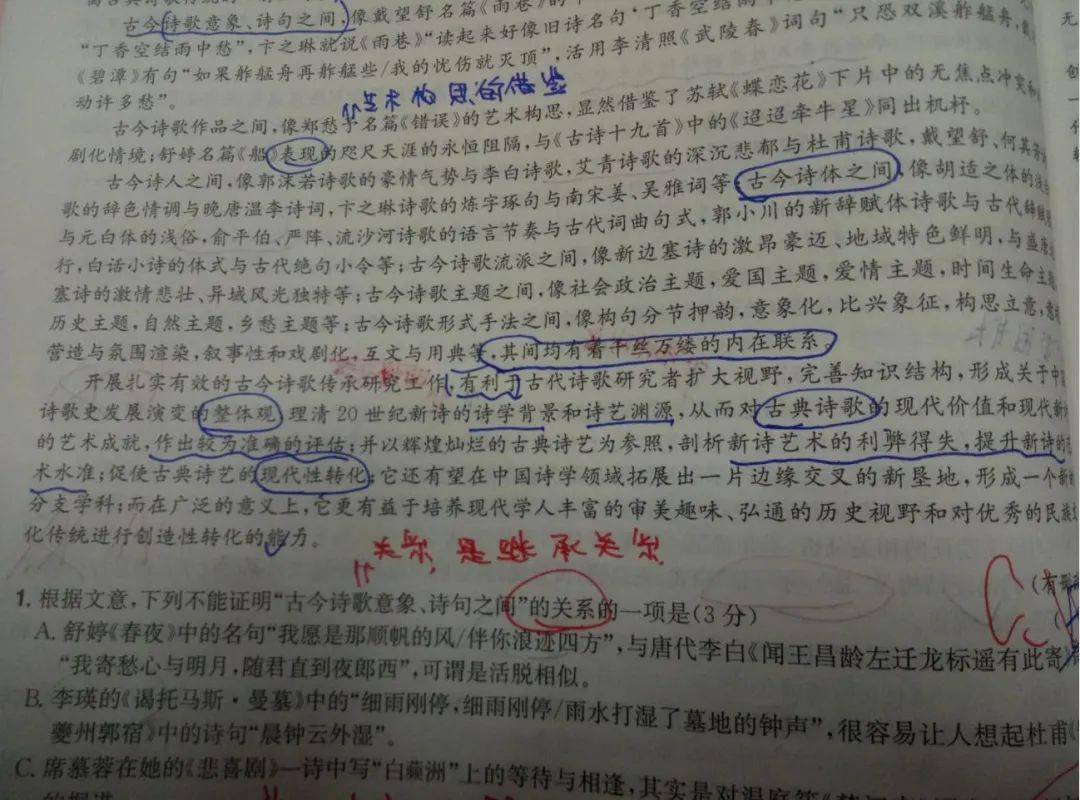 古今诗歌意象、诗句之间,像戴望舒名篇《雨巷》的
“丁香空结雨中愁”,卞之琳就说《雨巷》“读起来好像旧诗名句‘丁香空结雨
《碧潭》有句“如果舴艋舟再舴艋些/我的忧伤就灭顶”,活用李清照《武陵春》词句“只恐双溪舴艋舟,
动许多愁”。
艺术构思的借鉴
古今诗歌作品之间,像郑愁予名篇《错误》的艺术构思,显然借鉴了苏轼《蝶恋花》下片中的无焦点冲突和
剧化情境;舒婷名篇《船》表现的咫尺天涯的永恒阻隔,与《古诗十九首》中的《迢迢牵牛星》同出机杼。
古今诗人之间,像郭沫若诗歌的豪情气势与李白诗歌,艾青诗歌的深沉悲郁与杜甫诗歌,戴望舒、何其芳
歌的辞色情调与晚唐温李诗词,卞之琳诗歌的炼字琢句与南宋姜、吴雅词等;古今诗体之间,像胡适之体的浅
与元白体的浅俗,俞平伯、严阵、流沙河诗歌的语言节奏与古代词曲句式,郭小川的新辞赋体诗歌与古代辞赋
行,白话小诗的体式与古代绝句小令等;古今诗歌流派之间,像新边塞诗的激昂豪迈、地域特色鲜明,与盛唐
塞诗的激情悲壮、异域风光独特等;古今诗歌主题之间,像社会政治主题,爱国主题,爱情主题,时间生命主
历史主题,自然主题,乡愁主题等;古今诗歌形式手法之间,像构句分节押韵,意象化,比兴象征,构思立意,意
营造与氛围渲染,叙事性和戏剧化,互文与用典等,其间均有着千丝万缕的内在联系。
开展扎实有效的古今诗歌传承研究工作,有利于古代诗歌研究者扩大视野,完善知识结构,形成关于中
诗歌史发展演变的整体观,理清20世纪新诗的诗学背景和诗艺渊源,从而对古典诗歌的现代价值和现代新
的艺术成就,作出较为准确的评估;并以辉煌灿烂的古典诗艺为参照,剖析新诗艺术的利弊得失,提升新诗的
术水准;促使古典诗艺的现代性转化;它还有望在中国诗学领域拓展出一片边缘交叉的新垦地,形成一个新
分支学科;而在广泛的意义上,它更有益于培养现代学人丰富的审美趣味、弘通的历史视野和对优秀的民族
化传统进行创造性转化的能力。
关系 是继承关系
1. 根据文意,下列不能证明“古今诗歌意象、诗句之间”的关系的一项是(3分)
A. 舒婷《春夜》中的名句“我愿是那顺帆的风/伴你浪迹四方”,与唐代李白《闻王昌龄左迁龙标遥有此寄》
“我寄愁心与明月,随君直到夜郎西”,可谓是活脱相似。
B. 李瑛的《谒托马斯·曼墓》中的“细雨刚停,细雨刚停/雨水打湿了墓地的钟声”,很容易让人想起杜甫《
夔州郭宿》中的诗句“晨钟云外湿”。
C. 席慕蓉在她的《悲喜剧》一诗中写“白蘋洲”上的等待与相逢,其实是对温庭筠《